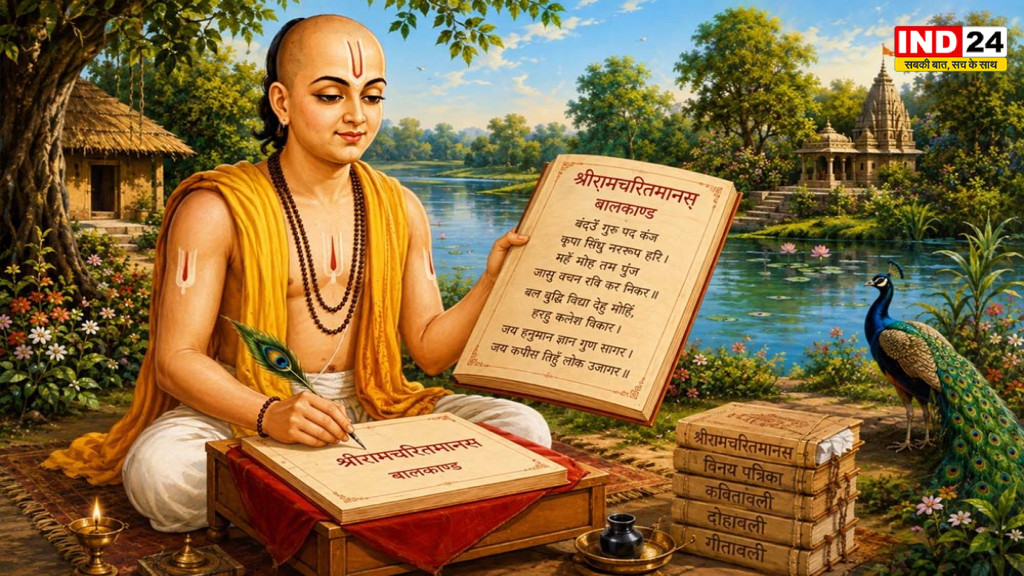 IND 24
सबकी बात, सच के साथ
श्रीरामचरितमानस्
बालकाण्ड
बंदउँ गुरु पद कंज
कृपा सिंधु नररूप हरि।
महँ मोह तम पुंज
जासु वचन रवि कर निकर॥
बल बुद्धि विद्या देहु मोहिं,
हरहु कलेश विकार।
जय हनुमान ज्ञान गुण सागर।
जय कपीस तिहुँ लोक उजागर॥
श्रीरामचरितमानस
बालकाण्ड
श्रीरामचरितमानस
विनय पत्रिका
कवितावली
दोहावली
गीतावली